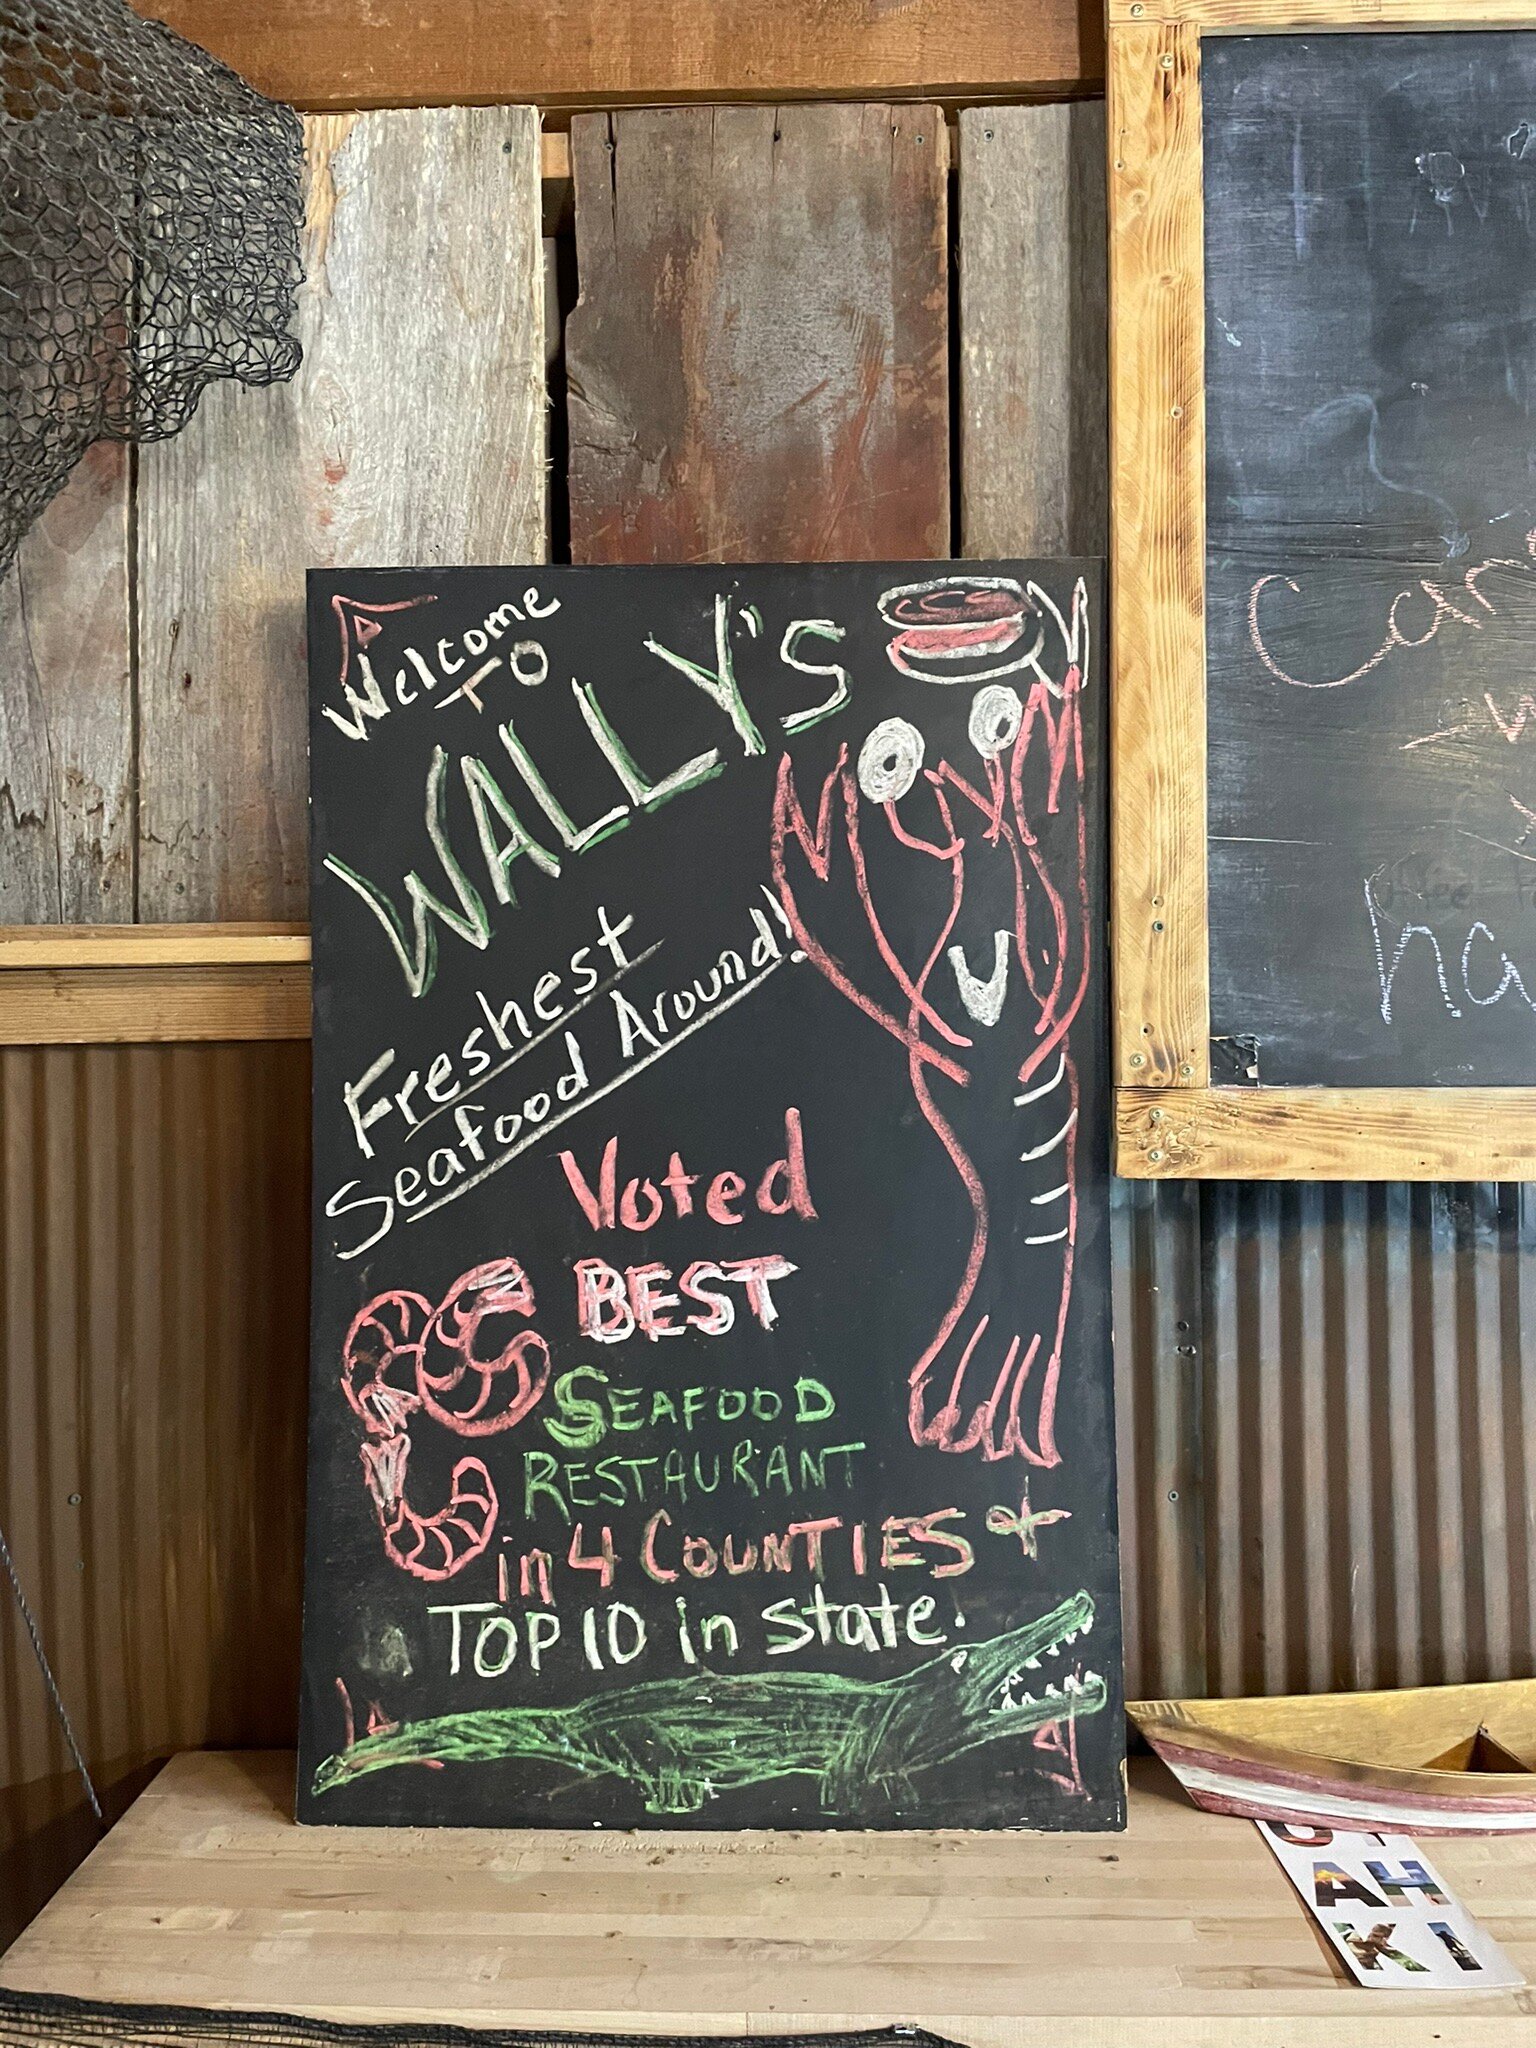 Welcome
TO
WALLY'S
Freshest
Seafood Around!
Voted
BEST
SEAFOOD
RESTAURANT
in 4 COUNTIES +
TOP 10 in state.
ha
AH
KI